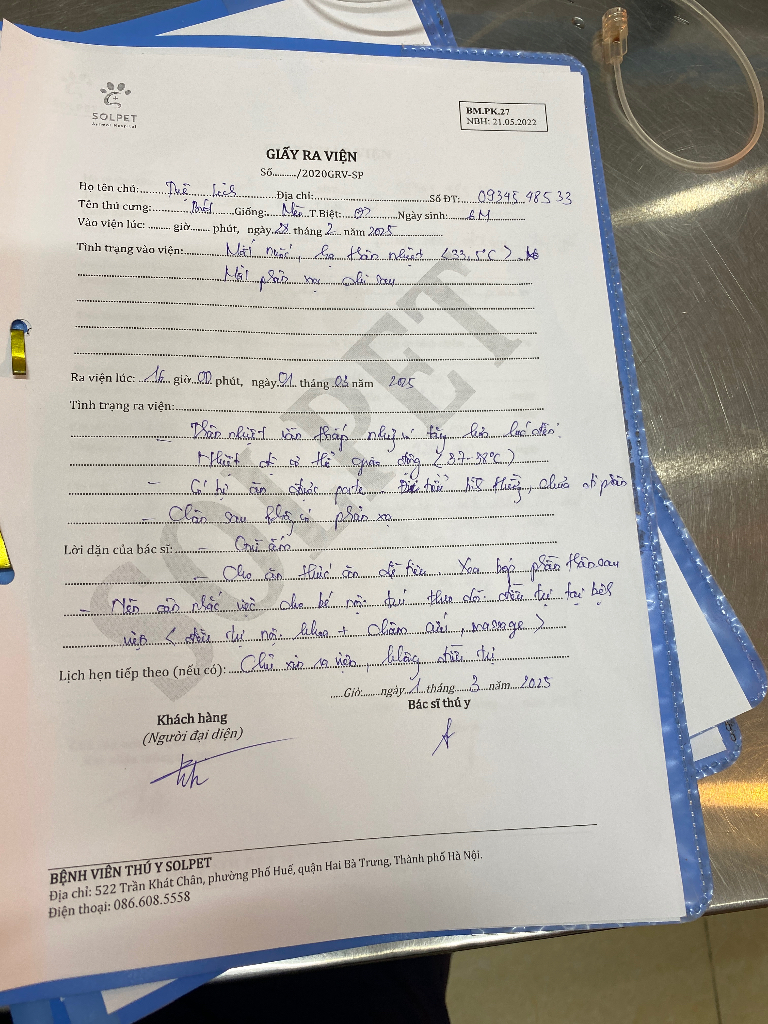 SOLPET
Animal Hospital
BM.PK.27
NBH: 21.05.2022
GIẤY RA VIỆN
Số........./2020GRV-SP
Họ tên chủ: Địa chỉ: Số ĐT: 09345 485 33
Tên thú cưng: Giống: Mèo T.Biệt: Ngày sinh: 6M
Vào viện lúc: ........ giờ....... phút, ngày 28 tháng 2 năm 2025
Tình trạng vào viện: Mất nước, hạ thân nhiệt (33,5°C)
Mất phản xạ chi sau
Ra viện lúc: 16 giờ 00 phút, ngày 01 tháng 03 năm 2025
Tình trạng ra viện:
- Thân nhiệt vẫn thấp nhưng có tăng hơn lúc đến.
Nhiệt độ có thể dao động (37-38°C)
- Có bú ăn được pate. Đi tiểu bình thường, chưa đi phân
- Chân sau không có phản xạ
Lời dặn của bác sĩ: - Giữ ấm
- Cho ăn thức ăn dễ tiêu. Xoa bóp phần thân sau
- Nên cân nhắc việc cho bé nội trú theo dõi điều trị tại bệnh
viện (điều trị nội khoa + chăm sóc, massage)
Lịch hẹn tiếp theo (nếu có): Chủ xin ra viện, không điều trị
.....Giờ.......ngày 1 tháng 3 năm 2025
Khách hàng
(Người đại diện)
Bác sĩ thú y
SOLPET
BỆNH VIỆN THÚ Y SOLPET
Địa chỉ: 522 Trần Khát Chân, phường Phố Huế, quận Hai Bà Trưng, Thành phố Hà Nội.
Điện thoại: 086.608.5558